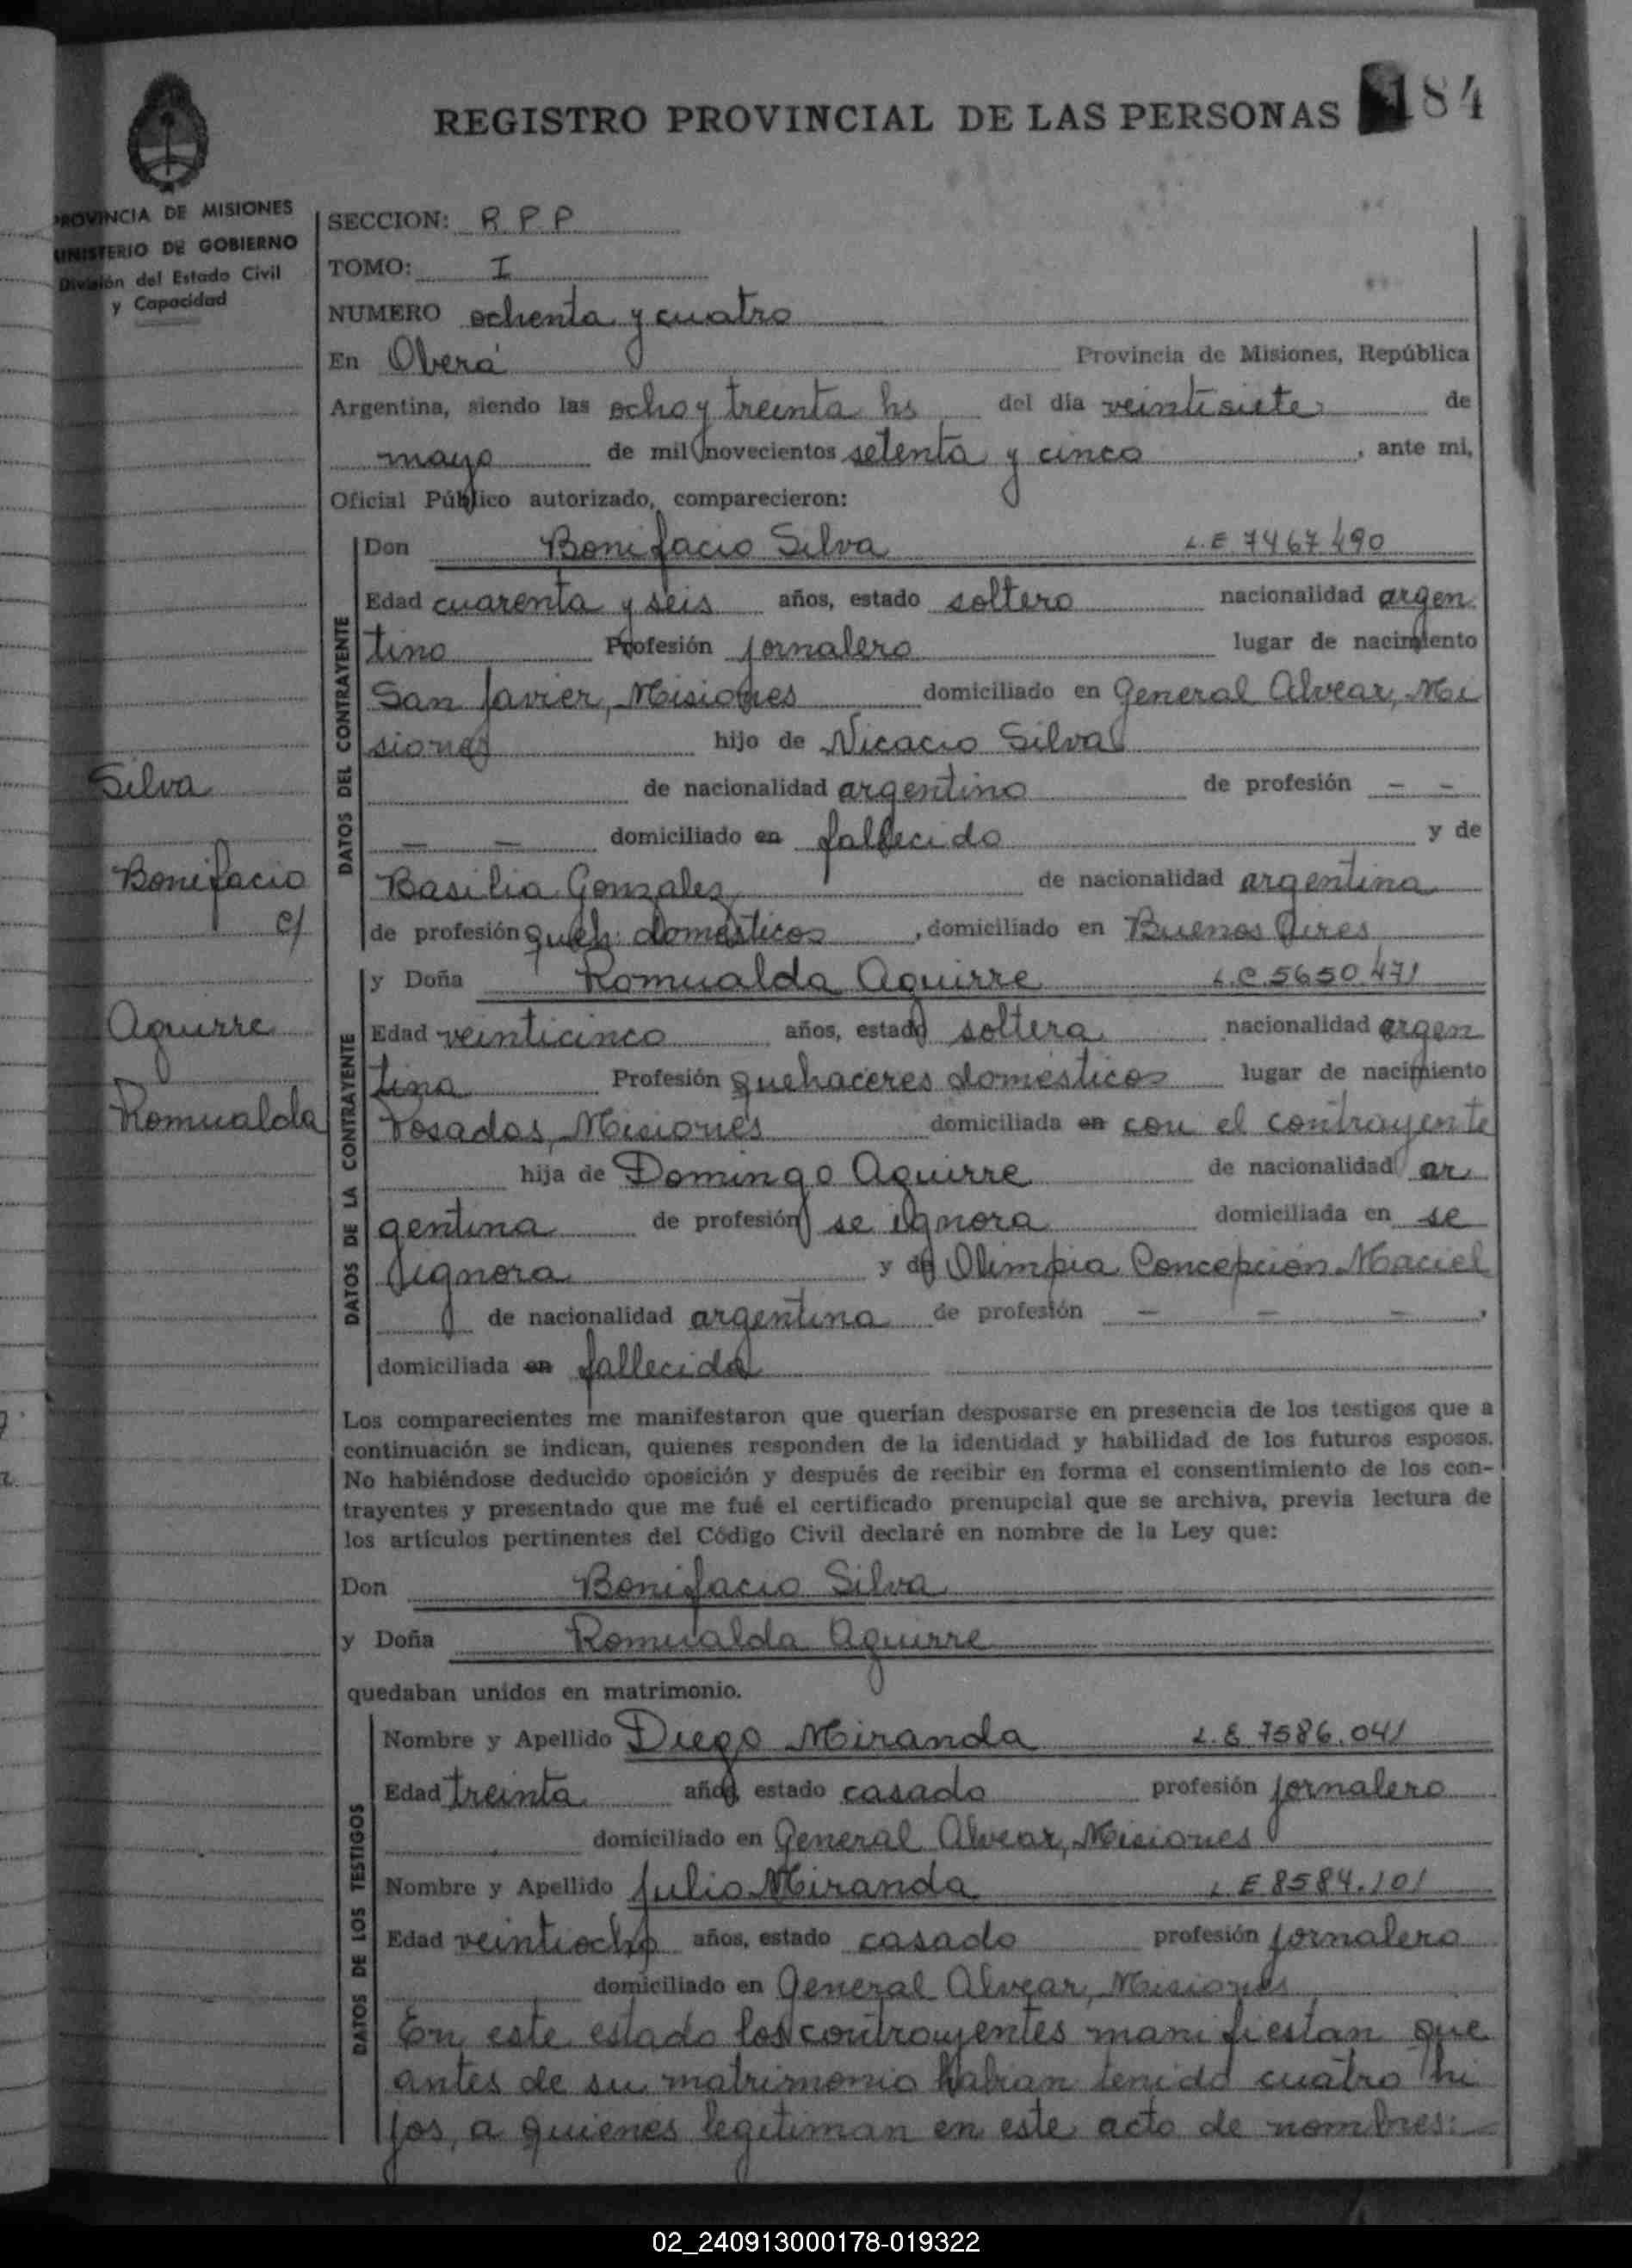 REGISTRO PROVINCIAL DE LAS PERSONAS 184
PROVINCIA DE MISIONES
MINISTERIO DE GOBIERNO
División del Estado Civil
y Capacidad
SECCION: R P P
TOMO: I
NUMERO ochenta y cuatro
En Oberá Provincia de Misiones, República
Argentina, siendo las ocho y treinta hs del día veintisiete de
mayo de mil novecientos setenta y cinco, ante mi,
Oficial Público autorizado, comparecieron:
DATOS DEL CONTRAYENTE
Don Bonifacio Silva L.E 7467490
Edad cuarenta y seis años, estado soltero nacionalidad argen
tino Profesión jornalero lugar de nacimiento
San Javier, Misiones domiciliado en General Alvear, Mi
siones hijo de Nicacio Silva
de nacionalidad argentino de profesión - -
- - domiciliado en fallecido y de
Basilia Gonzalez de nacionalidad argentina
de profesión queh. domésticos, domiciliado en Buenos Aires
Silva
Bonifacio
c/
Aguirre
Romualda
DATOS DE LA CONTRAYENTE
y Doña Romualda Aguirre L.C.5650.471
Edad veinticinco años, estado soltera nacionalidad argen
tina Profesión quehaceres domésticos lugar de nacimiento
Posadas, Misiones domiciliada en con el contrayente
hija de Domingo Aguirre de nacionalidad ar
gentina de profesión se ignora domiciliada en se
ignora y de Olimpia Concepción Maciel
de nacionalidad argentina de profesión - - -,
domiciliada en fallecida
Los comparecientes me manifestaron que querían desposarse en presencia de los testigos que a
continuación se indican, quienes responden de la identidad y habilidad de los futuros esposos.
No habiéndose deducido oposición y después de recibir en forma el consentimiento de los con-
trayentes y presentado que me fué el certificado prenupcial que se archiva, previa lectura de
los artículos pertinentes del Código Civil declaré en nombre de la Ley que:
Don Bonifacio Silva
y Doña Romualda Aguirre
quedaban unidos en matrimonio.
DATOS DE LOS TESTIGOS
Nombre y Apellido Diego Miranda L.E 7586.041
Edad treinta años, estado casado profesión jornalero
domiciliado en General Alvear, Misiones
Nombre y Apellido Julio Miranda L E 8584.101
Edad veintiocho años, estado casado profesión jornalero
domiciliado en General Alvear, Misiones
En este estado los contrayentes manifiestan que
antes de su matrimonio habian tenido cuatro hi
jos, a quienes legitiman en este acto de nombres:
02_240913000178-019322